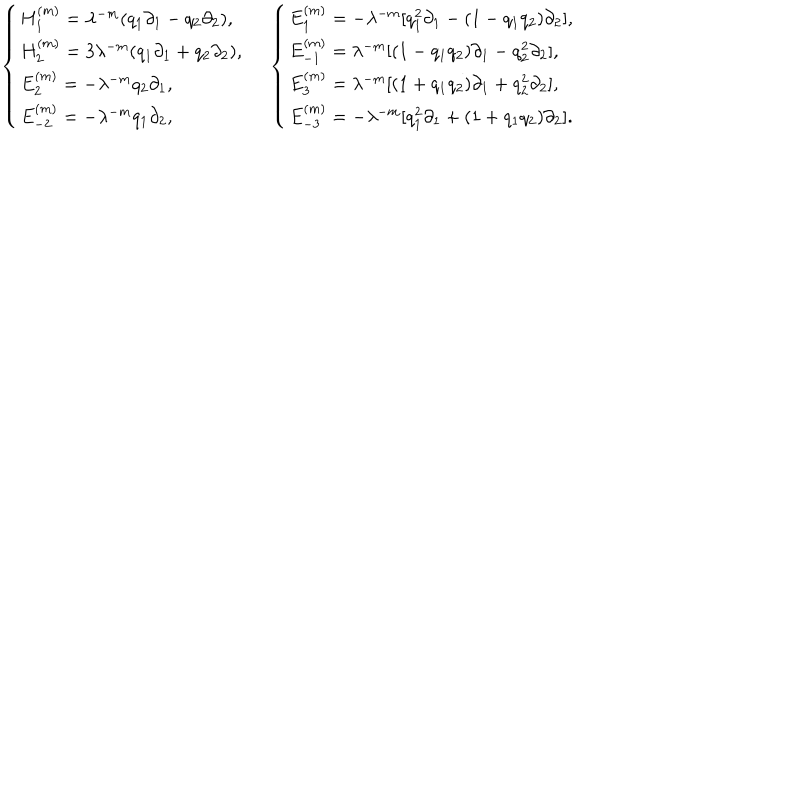 \begin{cases} H_1^{(m)} = \lambda^{-m}(q_1\partial_1 - q_2\partial_2), \\ H_2^{(m)} = 3\lambda^{-m}(q_1\partial_1 + q_2\partial_2), \\ E_2^{(m)} = -\lambda^{-m}q_2\partial_1, \\ E_{-2}^{(m)} = -\lambda^{-m}q_1\partial_2, \end{cases}
\begin{cases} E_1^{(m)} = -\lambda^{-m}[q_1^2\partial_1 - (1 - q_1q_2)\partial_2], \\ E_{-1}^{(m)} = \lambda^{-m}[(1 - q_1q_2)\partial_1 - q_2^2\partial_2], \\ E_3^{(m)} = \lambda^{-m}[(1 + q_1q_2)\partial_1 + q_2^2\partial_2], \\ E_{-3}^{(m)} = -\lambda^{-m}[q_1^2\partial_1 + (1 + q_1q_2)\partial_2]. \end{cases}